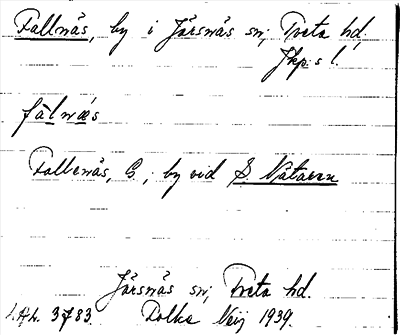 Fallnäs, by i Järsnäs sn, Tveta hd,
Jkp:s l.
fàlnæ̀s
Fallenäs, S., by vid S. Nätaren
Järsnäs sn, Tveta hd.
3783. 1939.